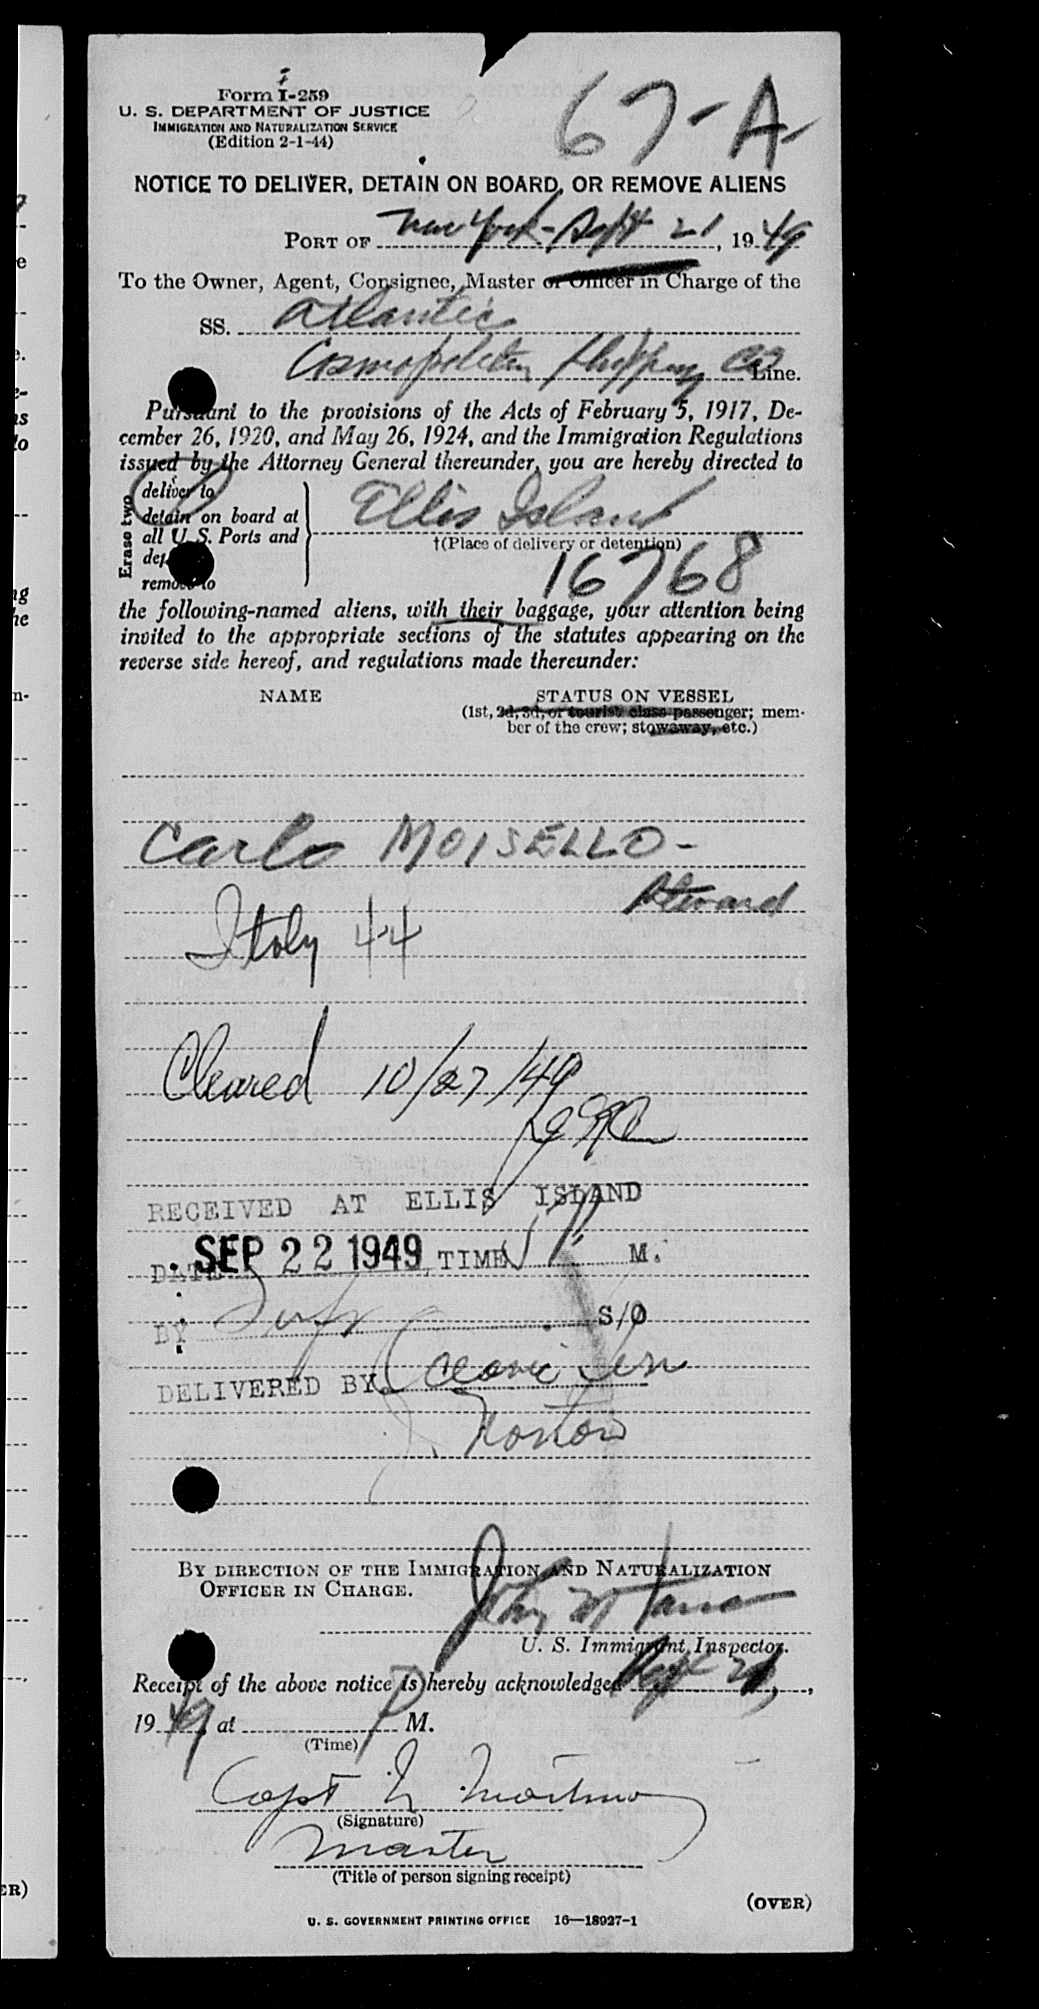 Form I-259
U. S. DEPARTMENT OF JUSTICE
IMMIGRATION AND NATURALIZATION SERVICE
(Edition 2-1-44)
67-A
NOTICE TO DELIVER, DETAIN ON BOARD, OR REMOVE ALIENS
PORT OF New York - Sept 21, 1949
To the Owner, Agent, Consignee, Master or Officer in Charge of the
SS. Atlantic
Cosmopolitan Shipping Co Line.
Pursuant to the provisions of the Acts of February 5, 1917, De-
cember 26, 1920, and May 26, 1924, and the Immigration Regulations
issued by the Attorney General thereunder, you are hereby directed to
Erase two
deliver to
detain on board at
all U. S. Ports and
remove to
Ellis Island
†(Place of delivery or detention)
16768
the following-named aliens, with their baggage, your attention being
invited to the appropriate sections of the statutes appearing on the
reverse side hereof, and regulations made thereunder:
NAME STATUS ON VESSEL
(1st, 2d, 3d, or tourist class passenger; mem-
ber of the crew; stowaway, etc.)
Carlo MOISELLO -
Steward
Italy 44
Cleared 10/27/49
RECEIVED AT ELLIS ISLAND
DATE SEP 22 1949 TIME M.
BY S/O
DELIVERED BY
BY DIRECTION OF THE IMMIGRATION AND NATURALIZATION
OFFICER IN CHARGE.
John
U. S. Immigrant Inspector.
Receipt of the above notice is hereby acknowledged Sept 21,
1949, at P M.
(Time)
Capt
(Signature)
Master
(Title of person signing receipt)
(OVER)
U. S. GOVERNMENT PRINTING OFFICE 16—18927-1
ER)